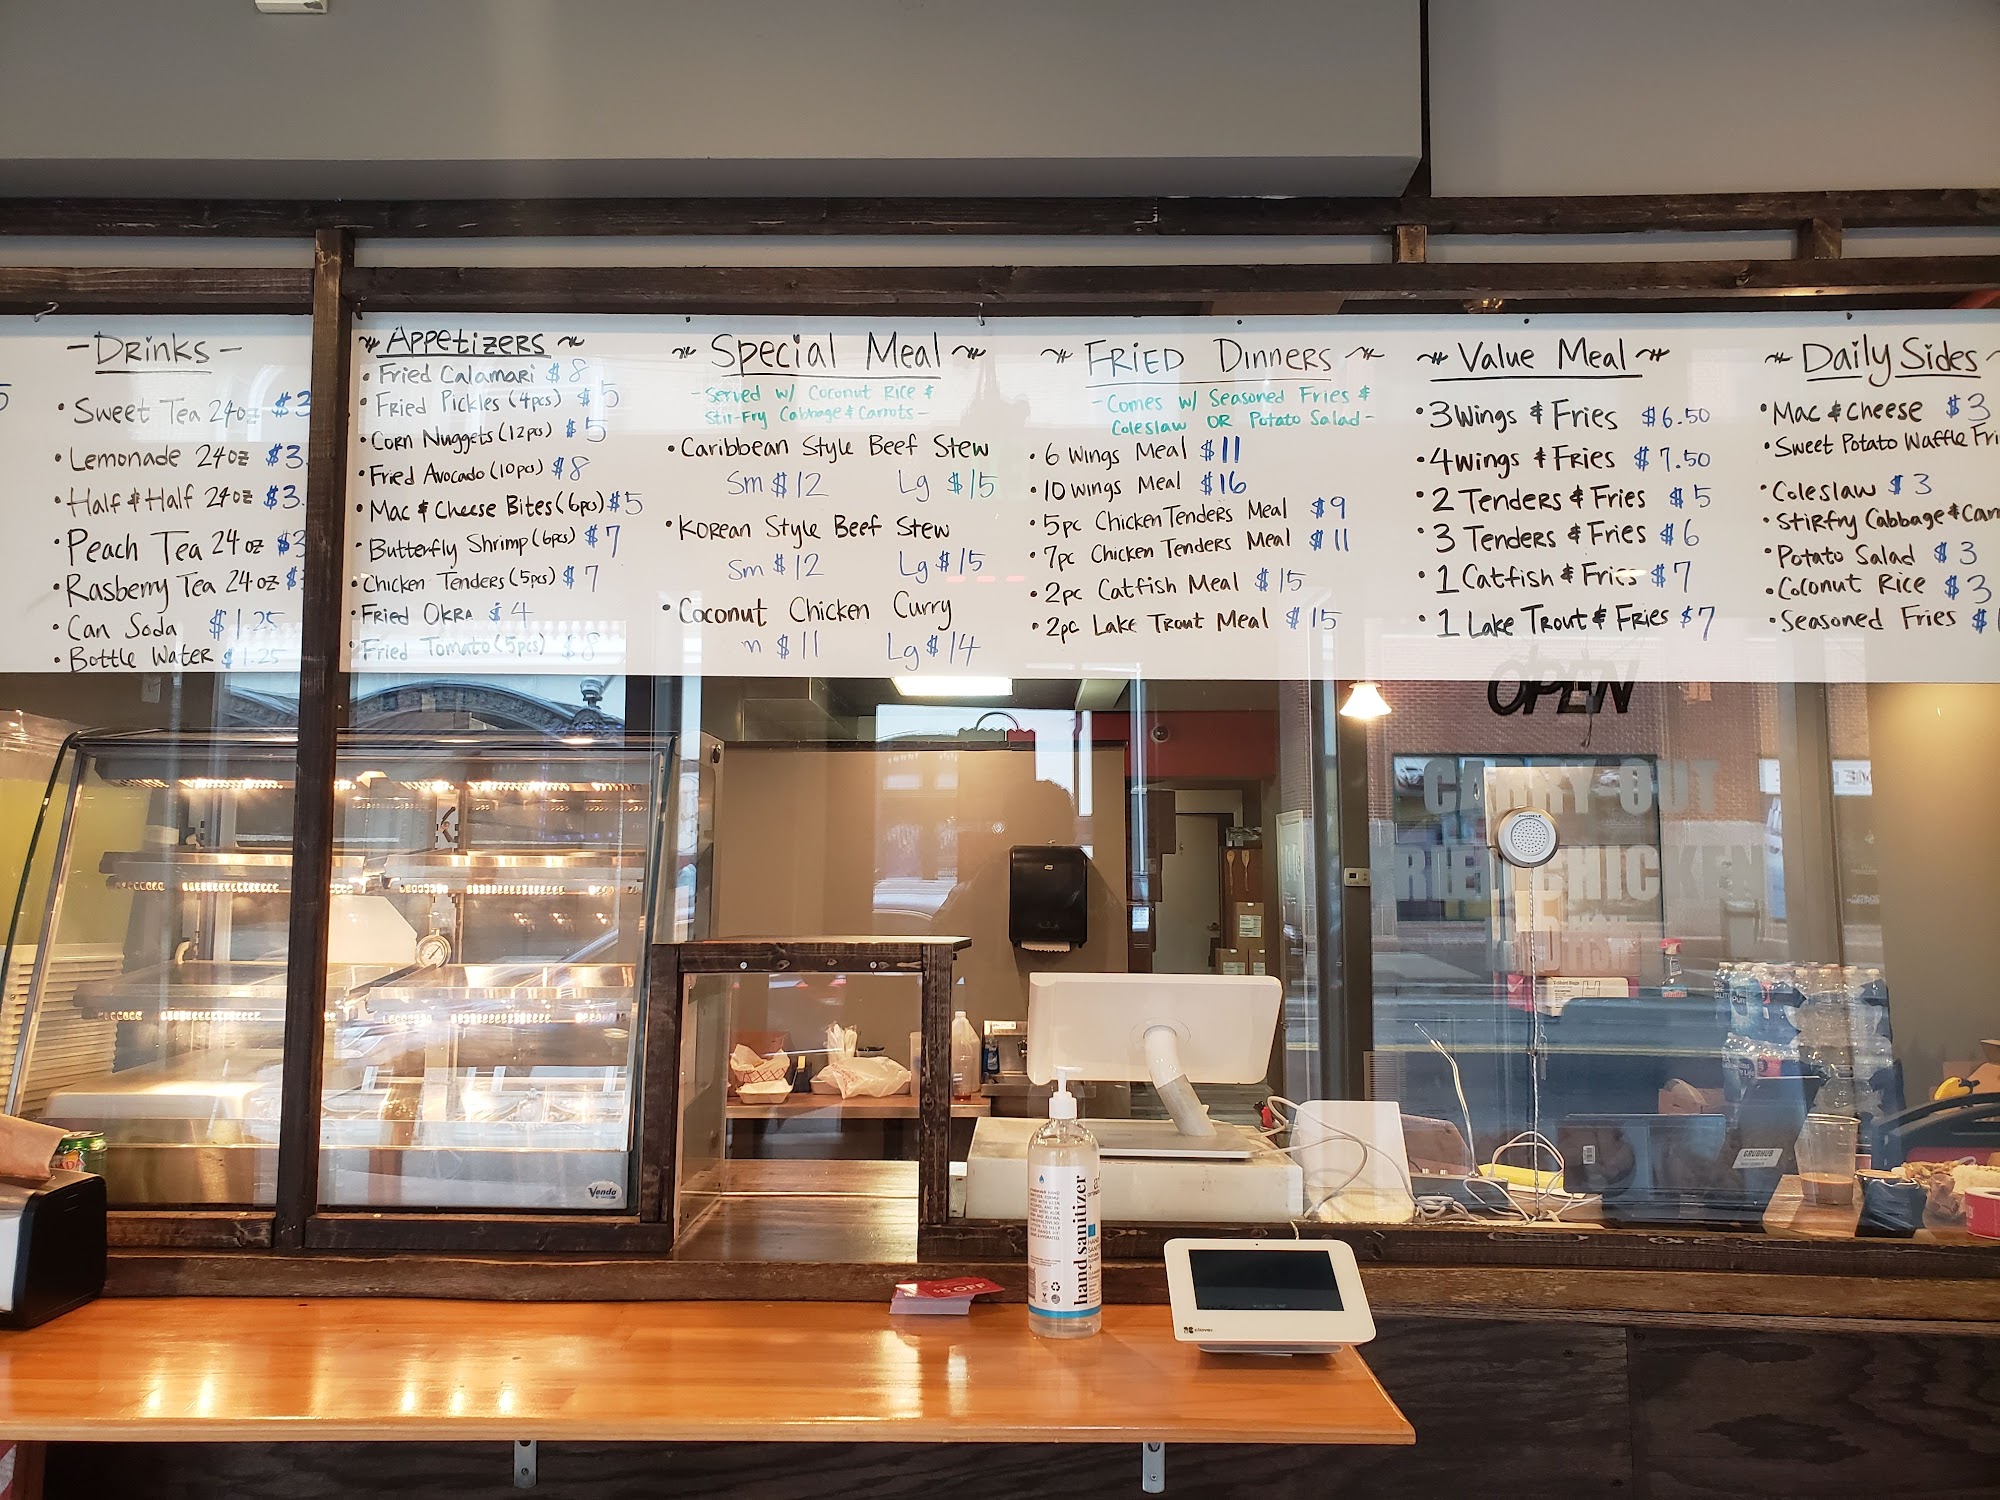 - Drinks -
• Sweet Tea 24oz $3
• Lemonade 24oz $3.
• Half & Half 24oz $3.
• Peach Tea 24oz $3
• Rasberry Tea 24oz $3
• Can Soda $1.25
• Bottle Water $1.25
~ Appetizers ~
• Fried Calamari $8
• Fried Pickles (4pcs) $5
• Corn Nuggets (12pcs) $5
• Fried Avocado (10pcs) $8
• Mac & Cheese Bites (6pcs) $5
• Butterfly Shrimp (6pcs) $7
• Chicken Tenders (5pcs) $7
• Fried Okra $4
• Fried Tomato (5pcs) $8
~ Special Meal ~
- Served w/ Coconut Rice &
Stir-Fry Cabbage & Carrots -
• Caribbean Style Beef Stew
Sm $12 Lg $15
• Korean Style Beef Stew
Sm $12 Lg $15
• Coconut Chicken Curry
m $11 Lg $14
~ Fried Dinners ~
- Comes w/ Seasoned Fries &
Coleslaw OR Potato Salad -
• 6 Wings Meal $11
• 10 Wings Meal $16
• 5pc Chicken Tenders Meal $9
• 7pc Chicken Tenders Meal $11
• 2pc Catfish Meal $15
• 2pc Lake Trout Meal $15
~ Value Meal ~
• 3 Wings & Fries $6.50
• 4 Wings & Fries $7.50
• 2 Tenders & Fries $5
• 3 Tenders & Fries $6
• 1 Catfish & Fries $7
• 1 Lake Trout & Fries $7
~ Daily Sides ~
• Mac & Cheese $3
• Sweet Potato Waffle Fri
• Coleslaw $3
• Stirfry Cabbage & Carr
• Potato Salad $3
• Coconut Rice $3
• Seasoned Fries $
OPEN
CARRY-OUT
FRIED CHICKEN
Vendo
$5 OFF
hand sanitizer
clover
GRUBHUB